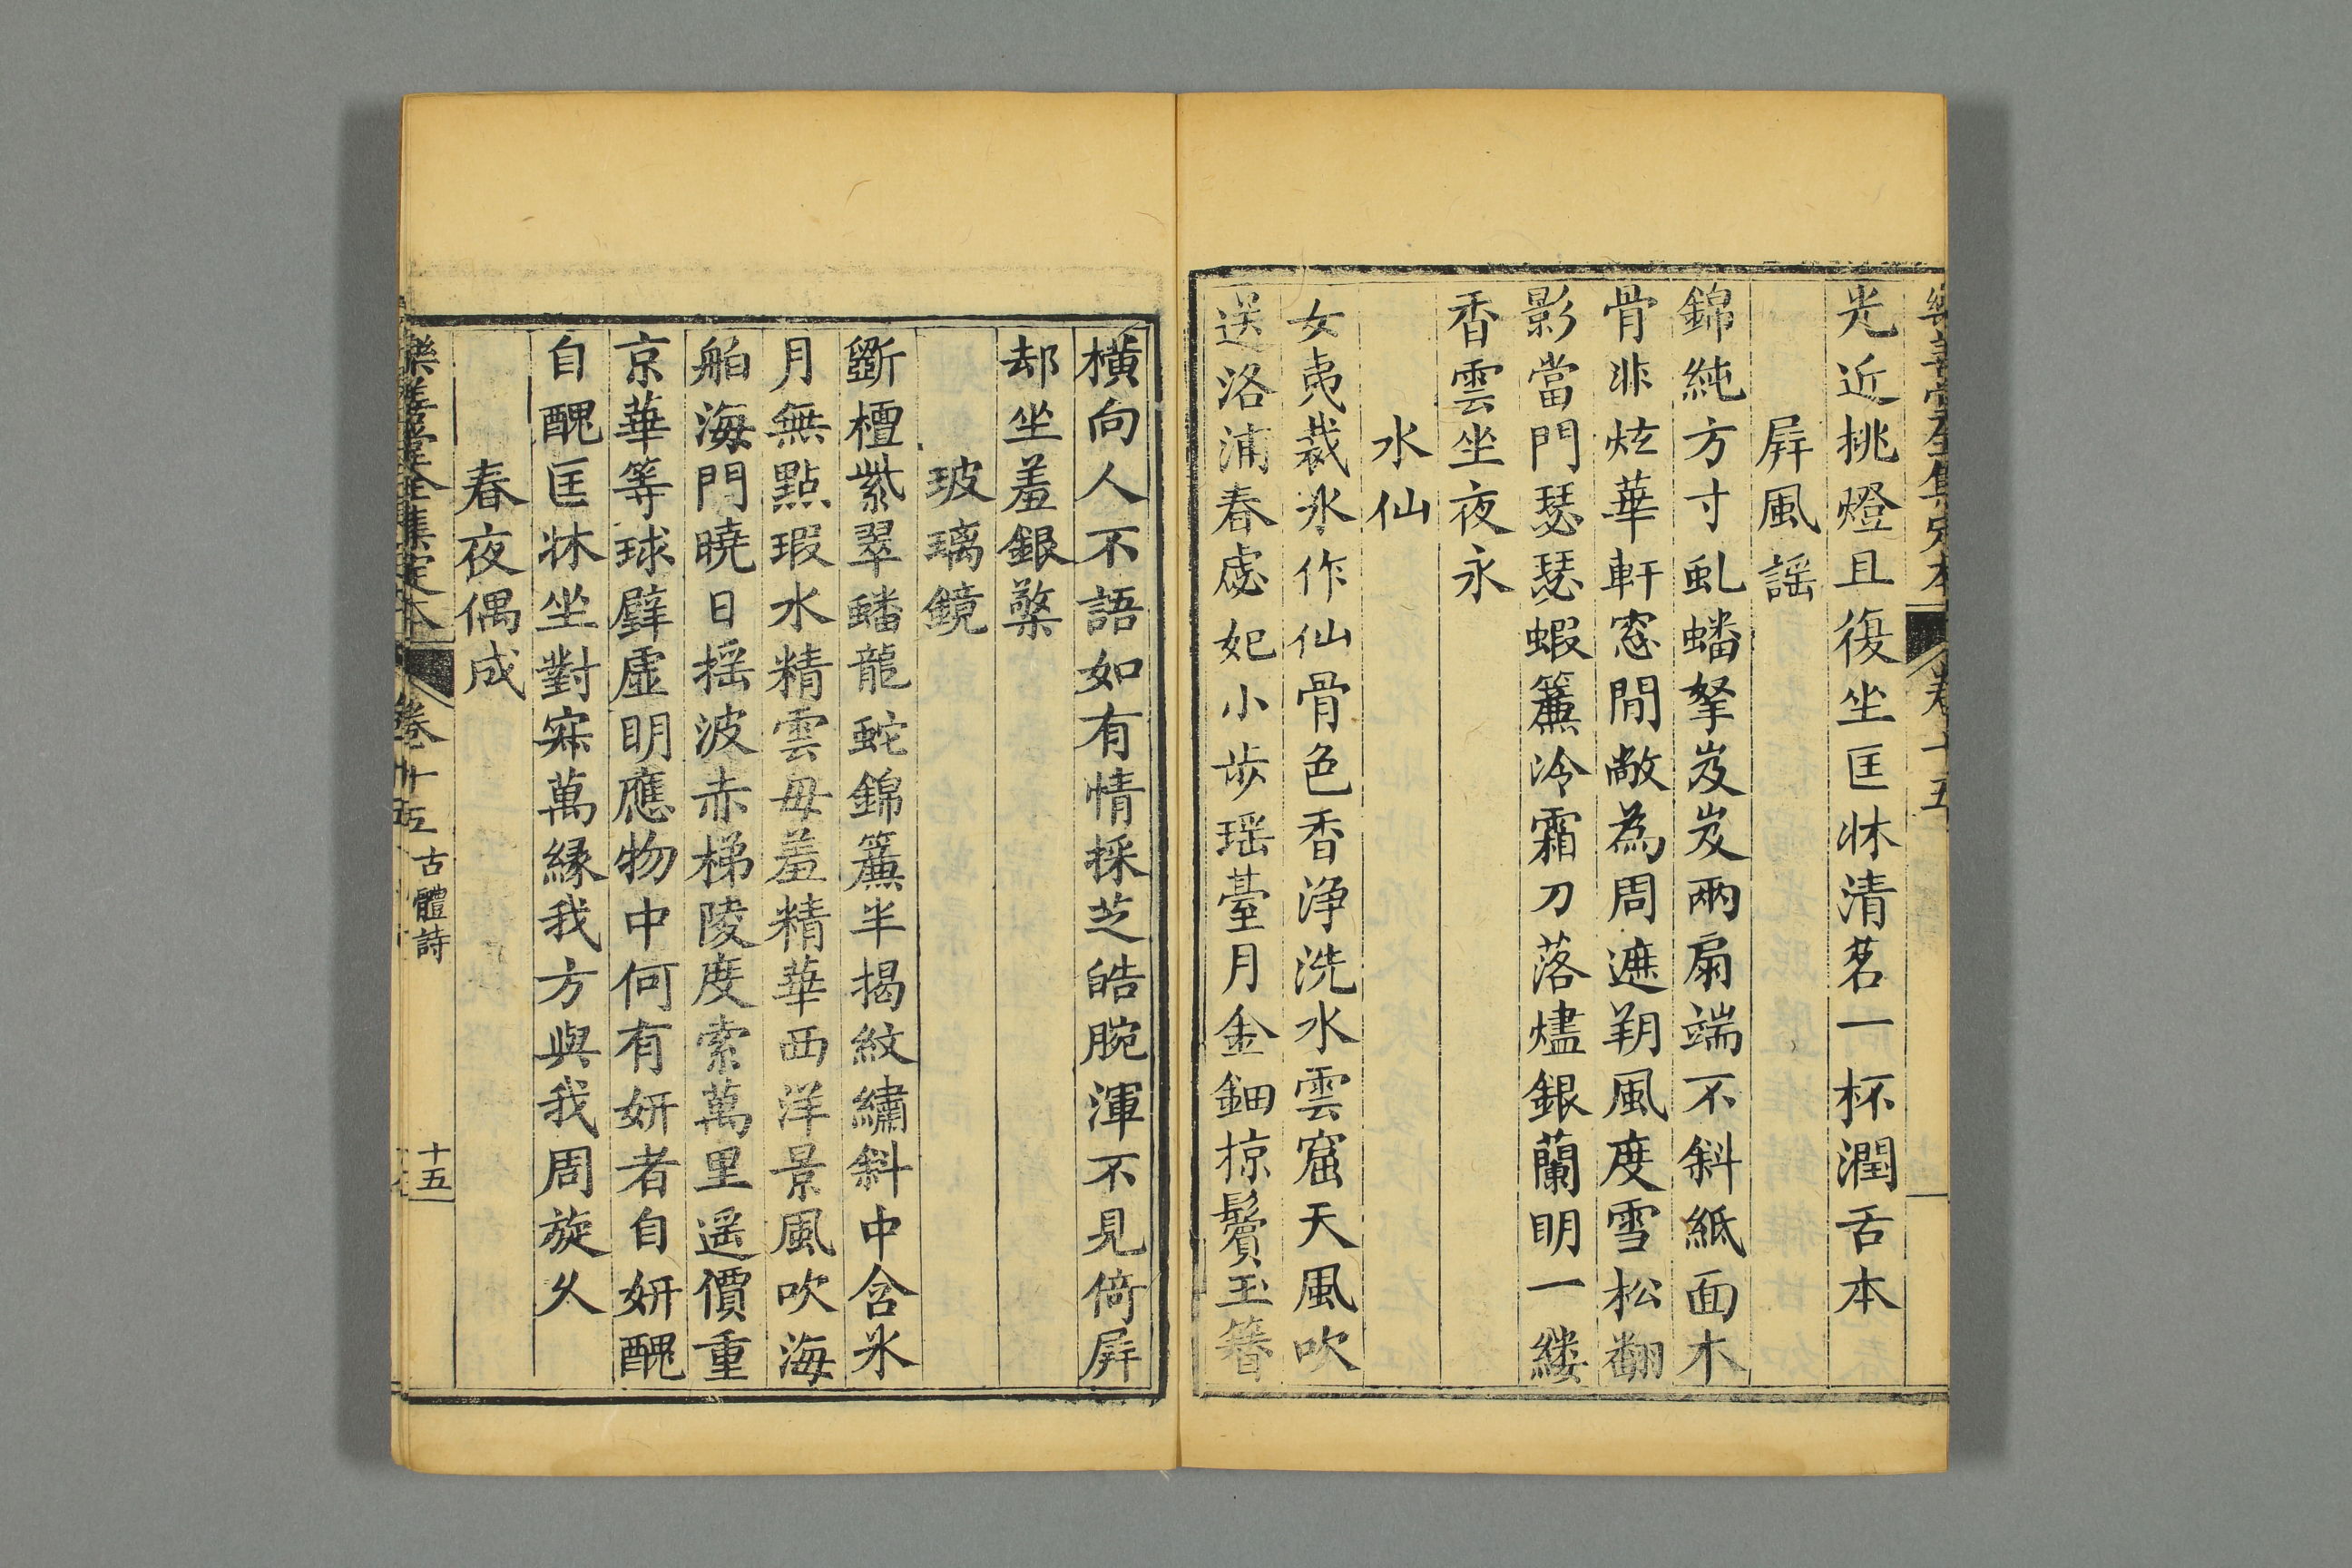 樂善堂全集定本 卷十五
光近挑燈且復坐匡牀清茗一杯潤舌本
屏風謠
錦純方寸虬蟠拏岌岌兩扇端不斜紙面木
骨非炫華軒窓閒敞為周遮朔風度雪松翻
影當門瑟瑟蝦簾冷霜刀落燼銀蘭明一縷
香雲坐夜永
水仙
女夷裁氷作仙骨色香浄洗水雲窟天風吹
送洛浦春處妃小步瑶臺月金鈿掠鬢玉簪
橫向人不語如有情採芝皓腕渾不見倚屏
却坐羞銀檠
玻璃鏡
斵檀紫翠蟠龍蛇錦簾半揭紋繡斜中含氷
月無點瑕水精雲母羞精華西洋景風吹海
舶海門曉日揺波赤梯陵度索萬里遥價重
京華等球璧虛明應物中何有妍者自妍醜
自醜匡牀坐對寐萬緣我方與我周旋久
春夜偶成
樂善堂全集定本 卷十五 古體詩 十五